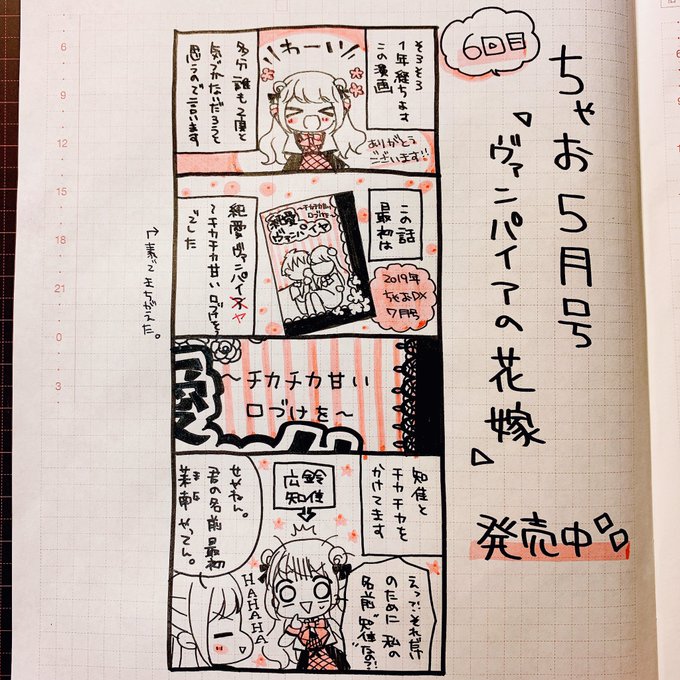 ちゃお5月号
『ヴァンパイアの花嫁』
発売中
6回目
そろそろ
1年経ちます
この漫画
わーい
ありがとう
ございます!!
多分誰も2度と
気づかないだろうと
思うので言います
この話
最初は
2019年
ちゃおDX
7月号
絶愛
ヴァンパイヤ
〜チカチカ甘い
口づけを〜
絶愛ヴァンパイヤ
〜チカチカ甘い口づけを〜
でした
↑素でまちがえた。
愛
〜チカチカ甘い
口づけを〜
知佳と
チカチカを
かけてます
鈴佳
広知
えっ?それだけ
のために私の
名前"知佳"なの?!
せやねん。
君の名前最初
茉南やってん。
まな
HAHAHA
6
9
12
15
18
21
0
3